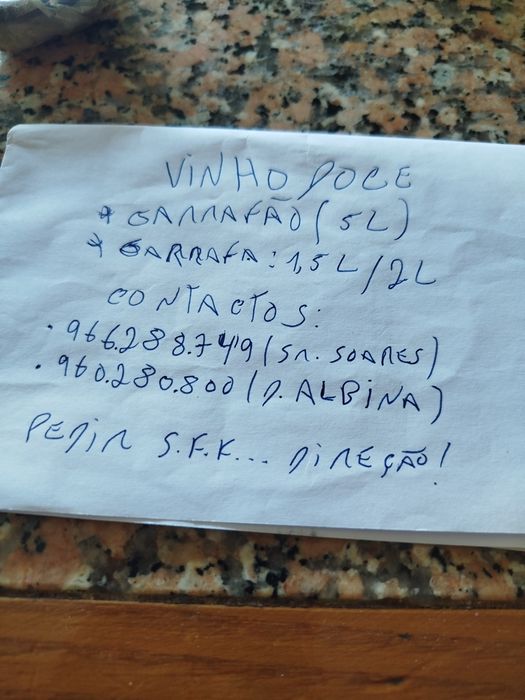 VINHO DOCE
* GARRAFÃO (5L)
* GARRAFA: 1,5L/2L
CONTACTOS:
. 966.288.749 (SR. SOARES)
. 960.280.800 (D. ALBINA)
PEDIR S.F.F... DIREÇÃO!